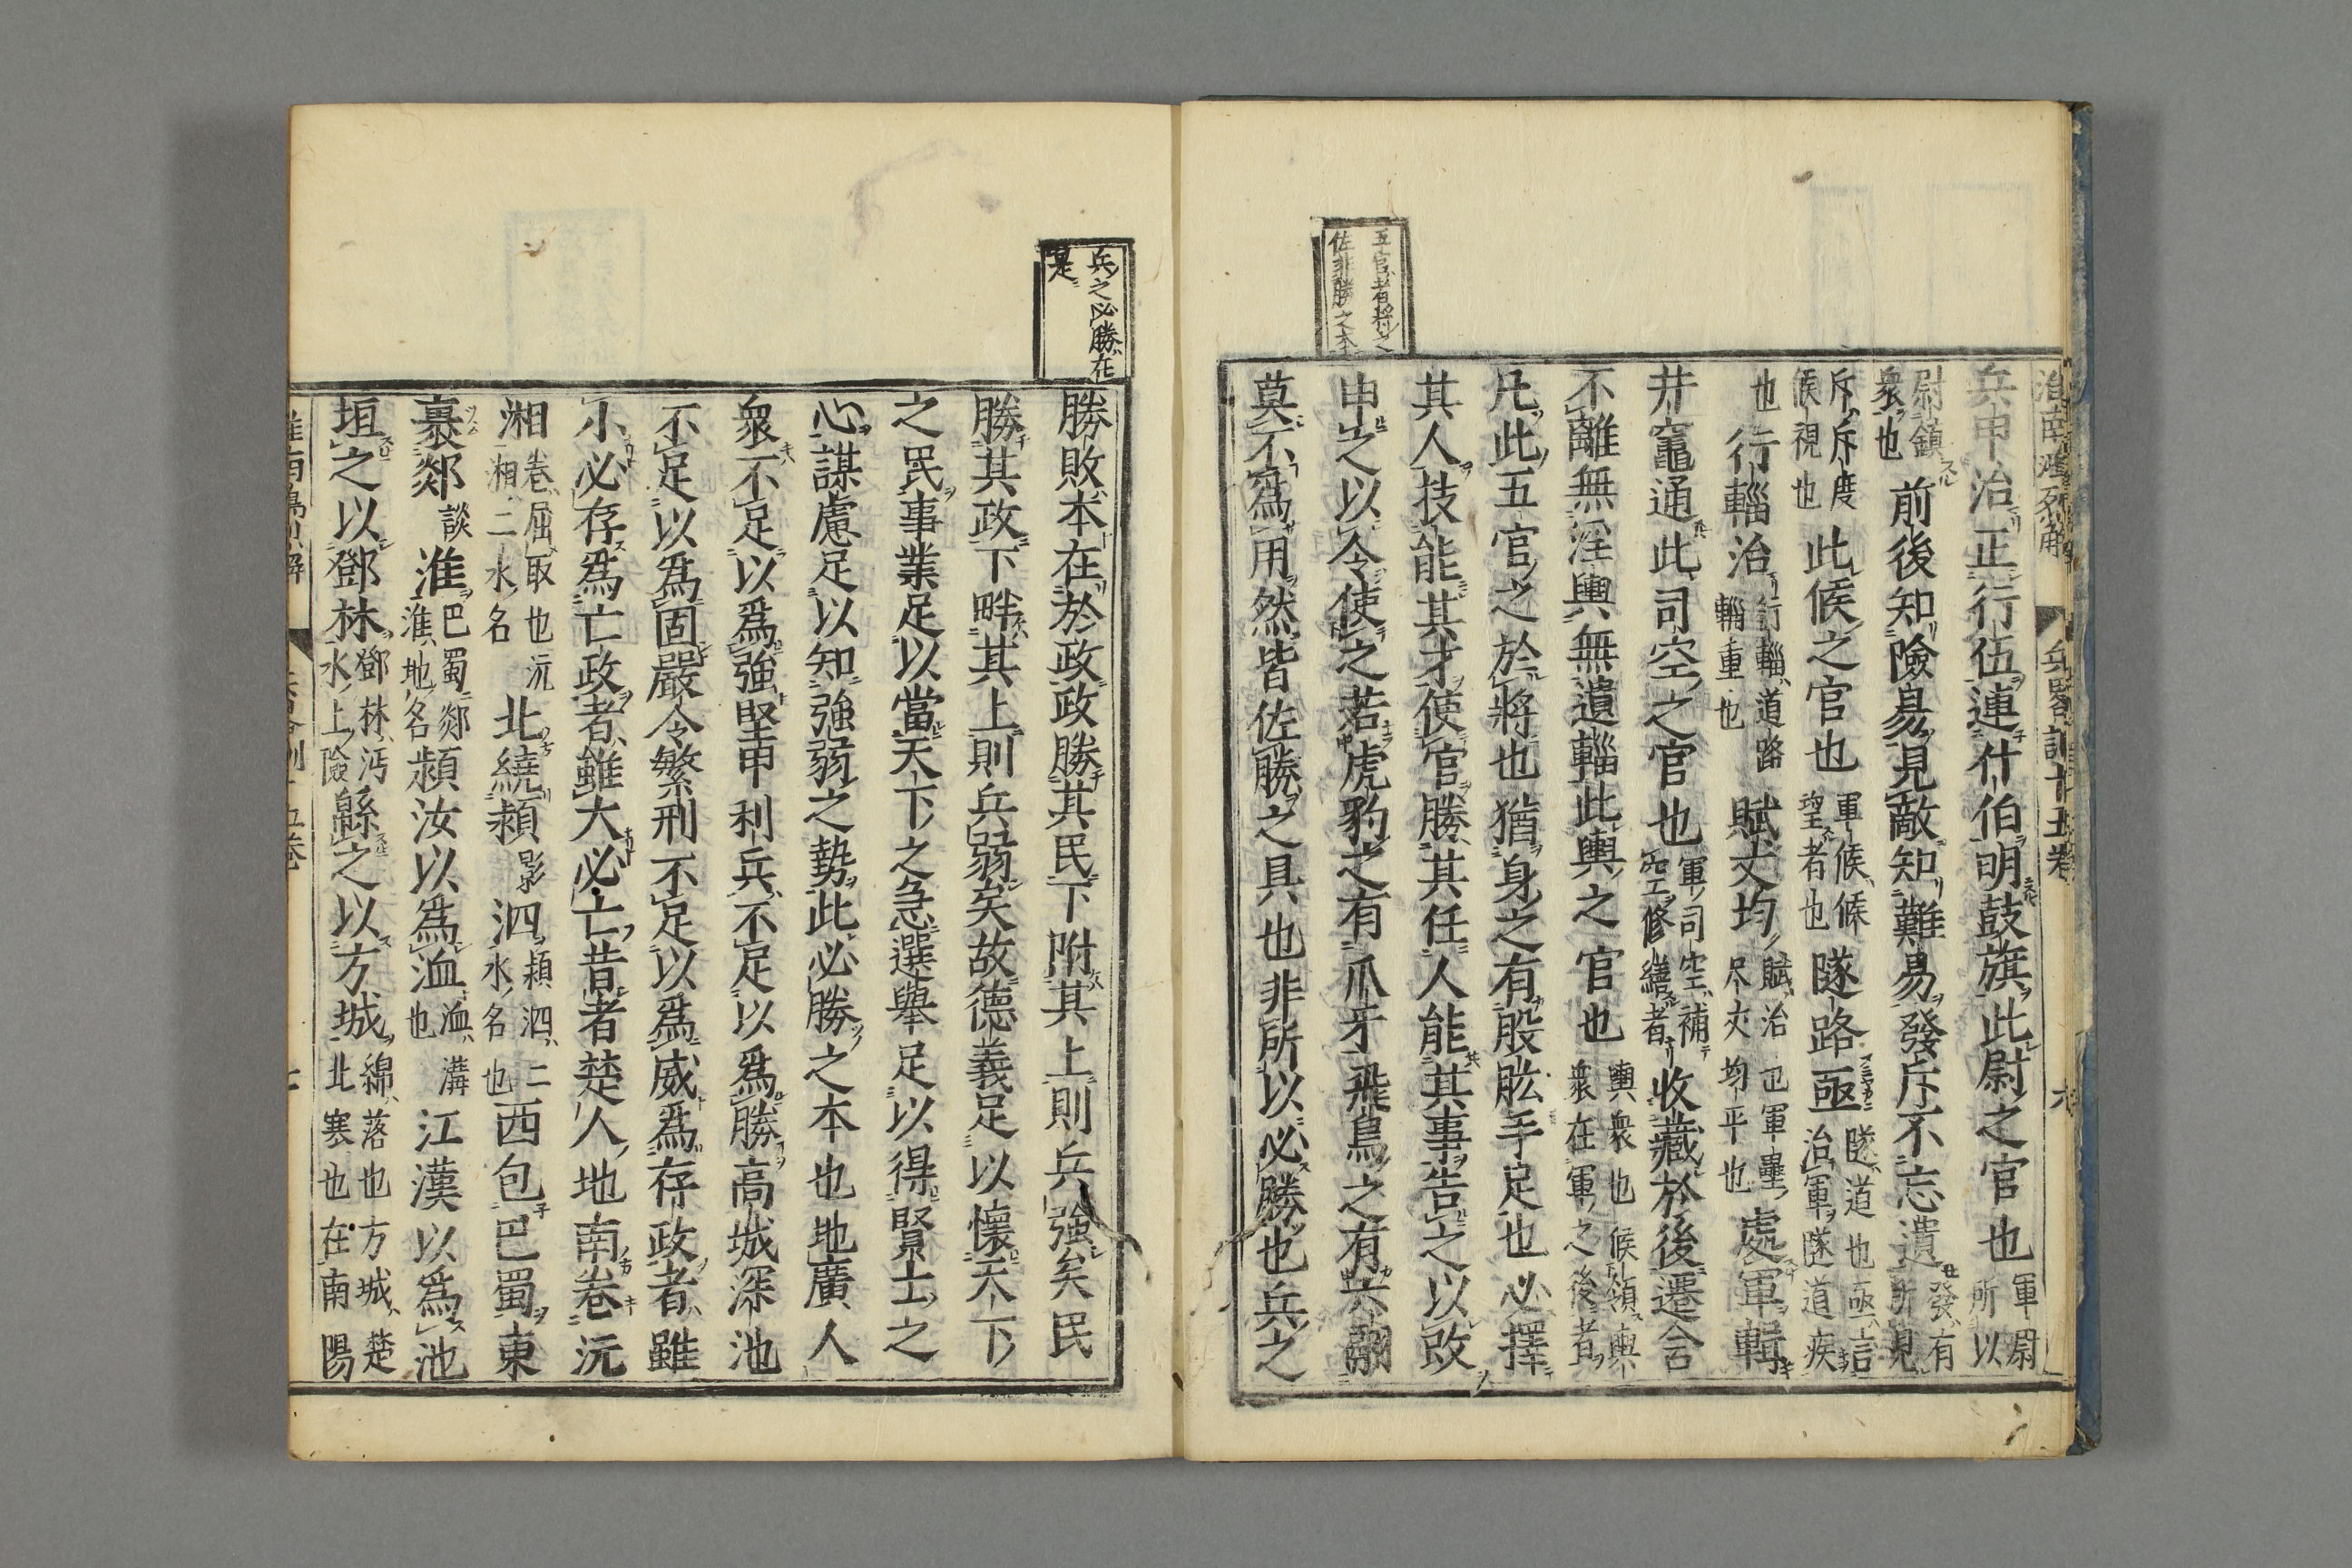 淮南鴻烈解 兵畧訓十五卷 六
五官者將之
佐非勝之本
兵甲治正行伍連什伯明鼓旗此尉之官也軍尉所以
尉鎮衆也前後知險易見敵知難易發斥不忘遺發有所見
斥斥度候視也此候之官也軍候候望者也隧路亟隧道也亟言治軍隧道疾
也行輜治行輜道路輜重也賦丈均賦治也軍壘尺丈均平也處軍輯
井竈通此司空之官也軍司空補空修繕者收藏於後遷舍
不離無淫輿無遺輜此輿之官也輿衆也候領輿衆在軍之後者
凡此五官之於將也猶身之有股肱手足也必擇
其人技能其才使官勝其任人能其事告之以政
申之以令使之若虎豹之有爪牙飛鳥之有六翮
莫不寫用然皆佐勝之具也非所以必勝也兵之
兵之必勝在
是
勝敗本在於政政勝其民下附其上則兵強矣民
勝其政下畔其上則兵弱矣故德義足以懷天下
之民事業足以當天下之急選舉足以得賢士之
心謀慮足以知強弱之勢此必勝之本也地廣人
衆不足以爲強堅甲利兵不足以爲勝高城深池
不足以爲固嚴令繁刑不足以爲威爲存政者雖
小必存爲亡政者雖大必亡昔者楚人地南卷沅
湘卷屈取也沅湘二水名北繞潁影泗潁泗二水名也西包巴蜀東
裹郯談淮巴蜀郯淮地名潁汝以爲洫洫溝也江漢以爲池
垣之以鄧林鄧林沔水上險緜之以方城綿落也方城楚北塞也在南陽